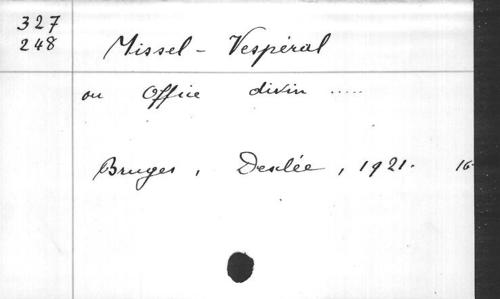 327
248
Missel - Vespéral
ou Office divin .....
Bruges, Desclée, 1921. 16